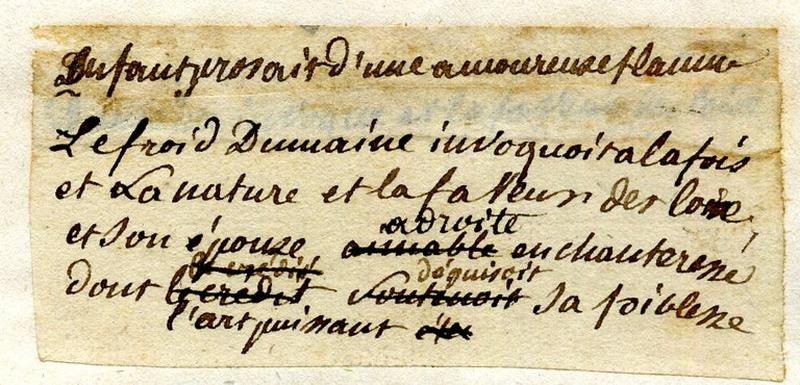 Enfant prosait d'une amoureuse flamme
Le froid Dumaine invoquoit a la fois
et La nature et la faveur des loix,
adroite
et son épouse aimable enchanteresse
le crédit déguisoit
dont le credit soutenoit sa foiblesse
l'art puissant